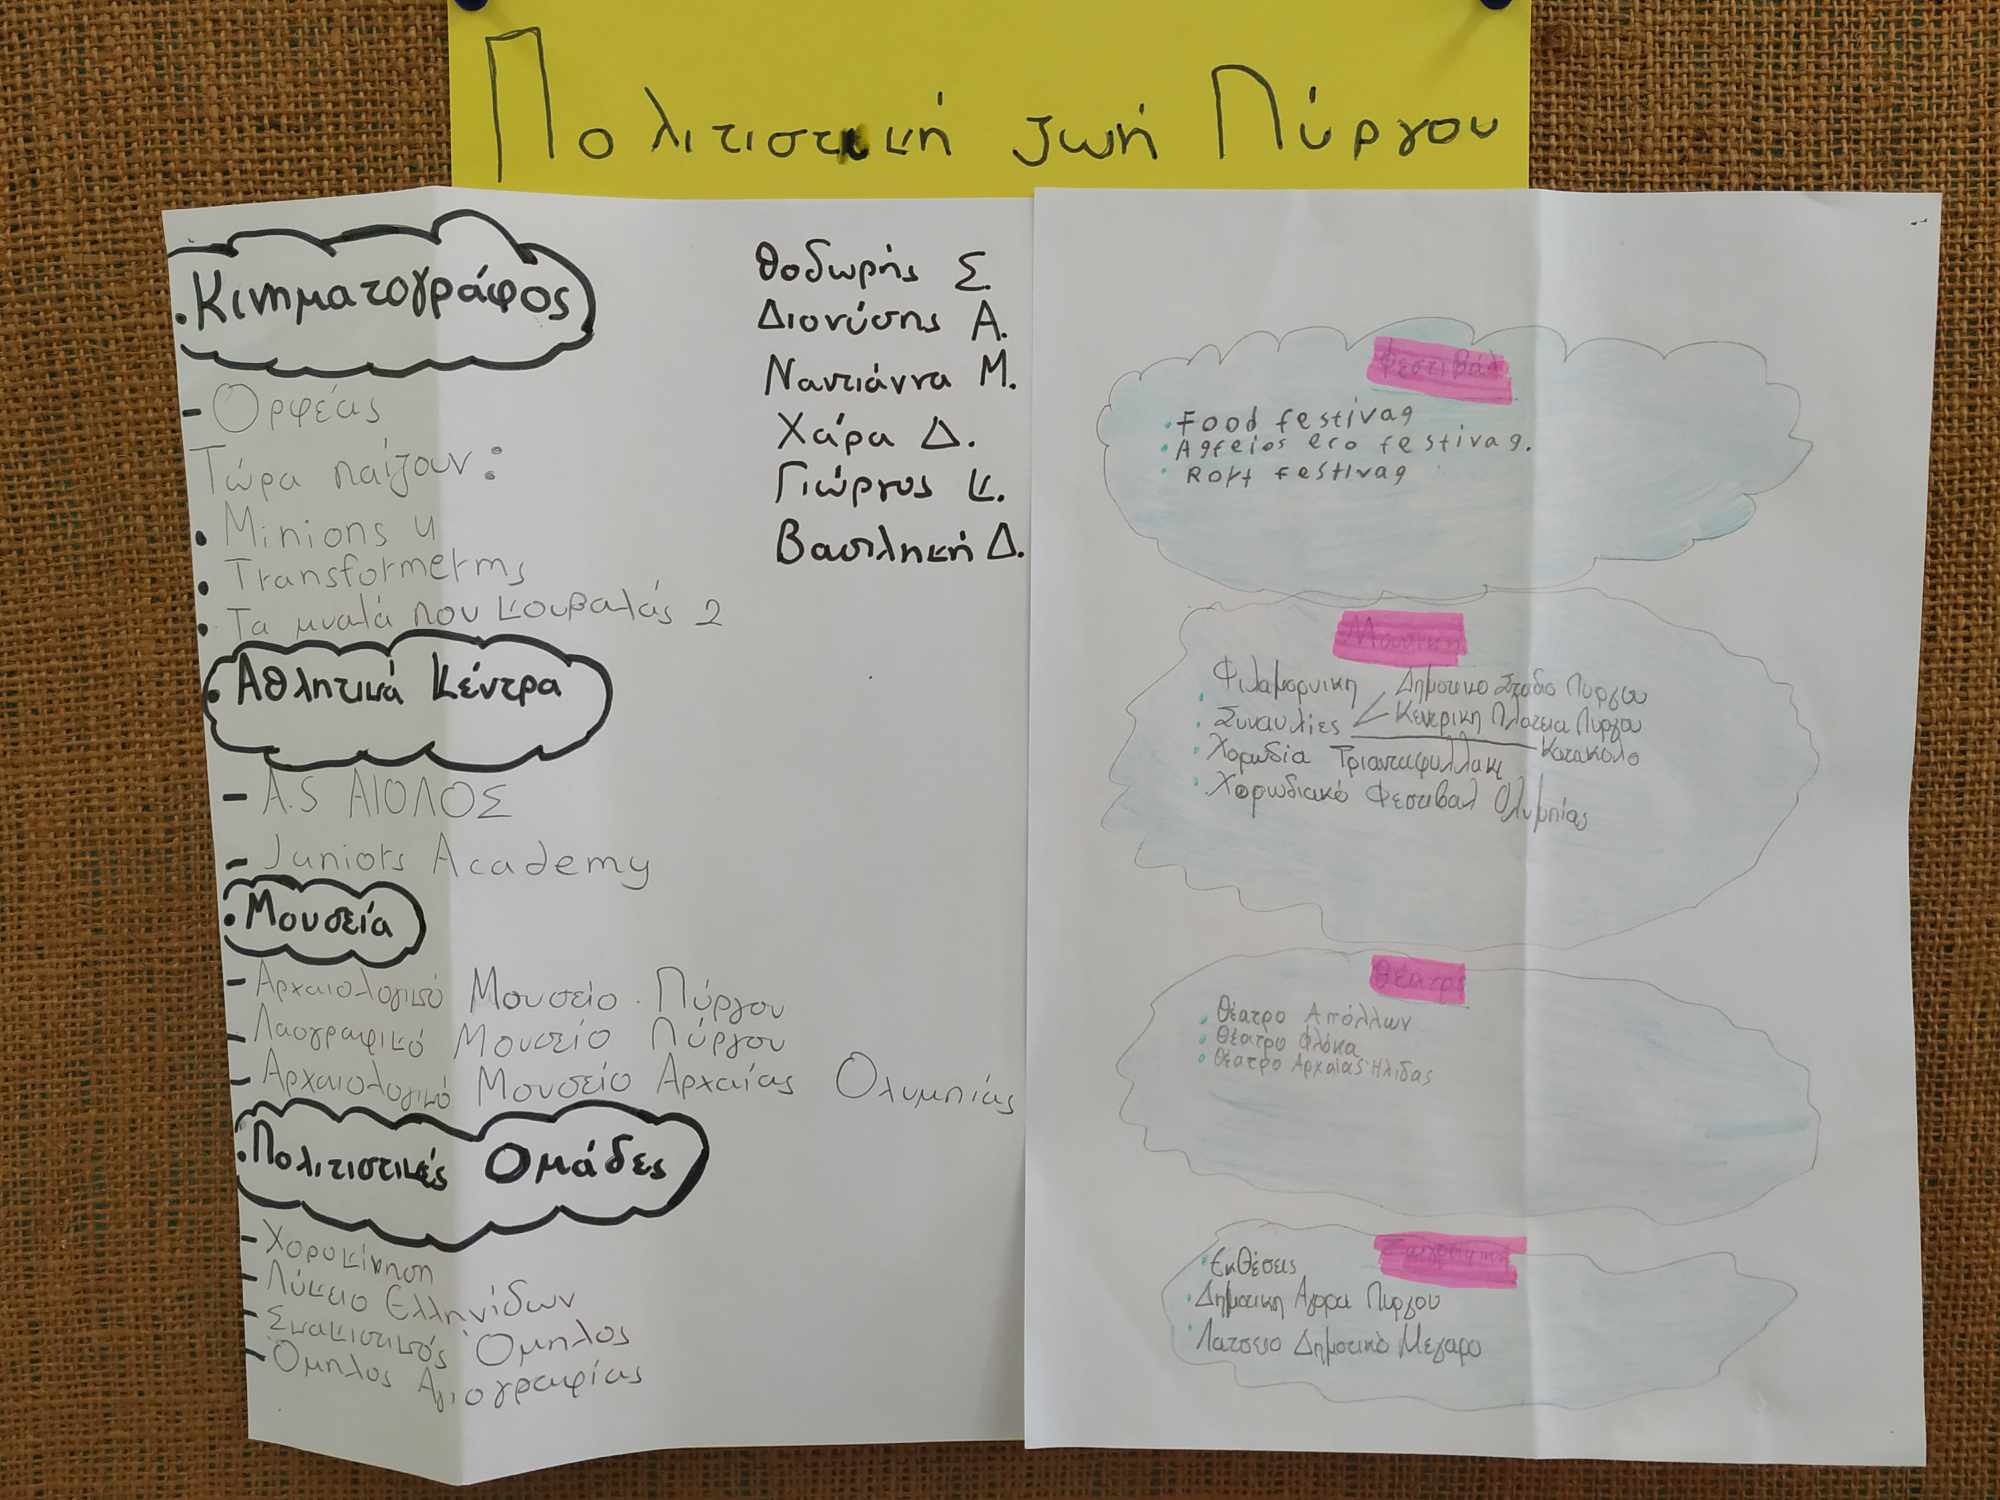 Πολιτιστική ζωή Πύργου
• Κινηματογράφος
- Ορφέας
Τώρα παίζουν:
• Minions 4
• Transformerms
• Τα μυαλά που κουβαλάς 2
• Αθλητικά Κέντρα
- A.S ΑΙΟΛΟΣ
- Juniors Academy
• Μουσεία
- Αρχαιολογικό Μουσείο Πύργου
- Λαογραφικό Μουσείο Πύργου
- Αρχαιολογικό Μουσείο Αρχαίας Ολυμπίας
• Πολιτιστικές Ομάδες
- Χοροκίνηση
- Λύκειο Ελληνίδων
- Σκακιστικός Όμηλος
- Όμηλος Αγιογραφίας
Θοδωρής Σ.
Διονύσης Α.
Ναντιάννα Μ.
Χάρα Δ.
Γιώργος Κ.
Βασιληκή Δ.
Φεστιβάλ
• Food festival
• Alfeios eco festival.
• Rock festival
Μουσική
Φιλαμορνικη Δημοτικο Σταδιο Πυργου
• Συναυλίες Κεντρικη Πλατεια Πυργου
• Χορωδία Τριανταφυλλακι Κατακολο
• Χορωδιακό Φεστιβαλ Ολυμπίας
Θέατρο
• Θέατρο Απόλλων
• Θέατρο Φλόκα
• Θέατρο Αρχαίας Ήλιδας
• Εκθέσεις
• Δημοτικη Αγορα Πυργου
• Λατσειο Δημοτικό Μεγαρο